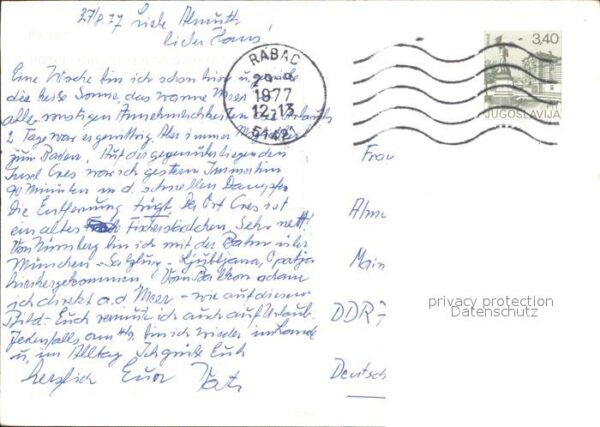 27/8.77 Liebe Almuth,
lieber Hans,
Eine Woche bin ich schon hier u.
die heiße Sonne, das warme Meer
aller sonstigen Annehmlichkeiten
2 Tage war es gewittrig. Aber immer
zum Baden. Auf der gegenüberliegenden
Insel Cres war ich gestern
90 Minuten m. d. schnellen Dampfer
Die Entfernung trügt. Der Ort Cres ist
ein altes Fischerstädtchen. Sehr nett!
Von Nürnberg bin ich mit der Bahn über
München - Salzburg - Ljubljana, Opatija
hierhergekommen. Vom Balkon
ich direkt a. d. Meer - wie auf diesem
Bild. Euch vermute ich auch auf Urlaub.
Jedenfalls am 4/9. bin ich wieder im Lande
u. im Alltag. Ich grüße Euch
herzlich Euer
RABAC
1977
12-13
51421
3,40
JUGOSLAVIJA
Frau
Almu
Main
DDR-
Deutsch
privacy protection
Datenschutz